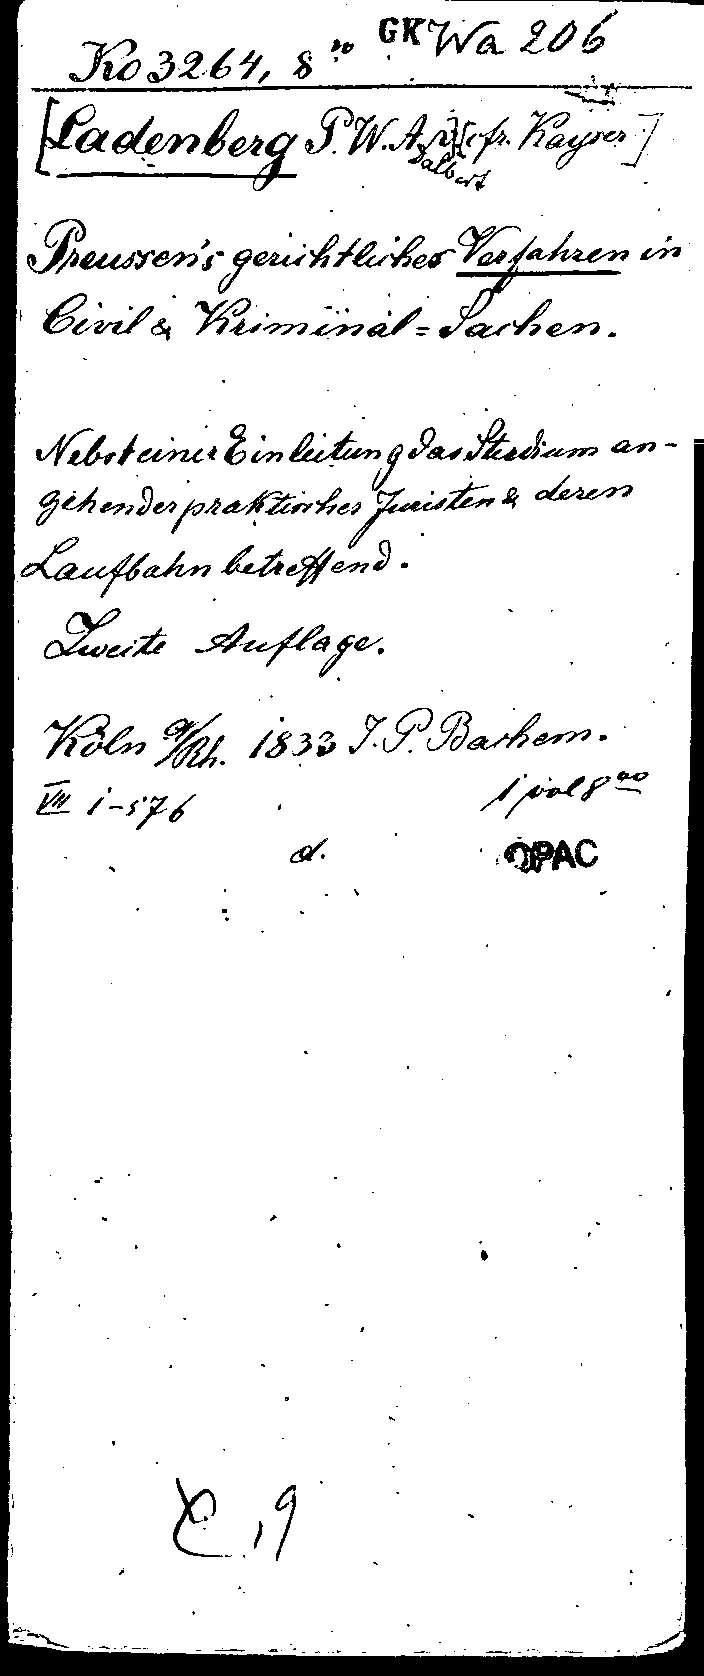 Ko 3264, 8^vo GK Wa 206
[Ladenberg P. W. A. [cfr. Kayser]
dalbert
Preussen's gerichtliches Verfahren in
Civil & Kriminal=Sachen.
Nebst einer Einleitung das Studium an-
gehender praktischer Juristen & deren
Laufbahn betreffend.
Zweite Auflage.
Köln a/Rh. 1833 J. P. Bachem.
VIII 1-576 1 vol 8^vo
d. OPAC
, 9